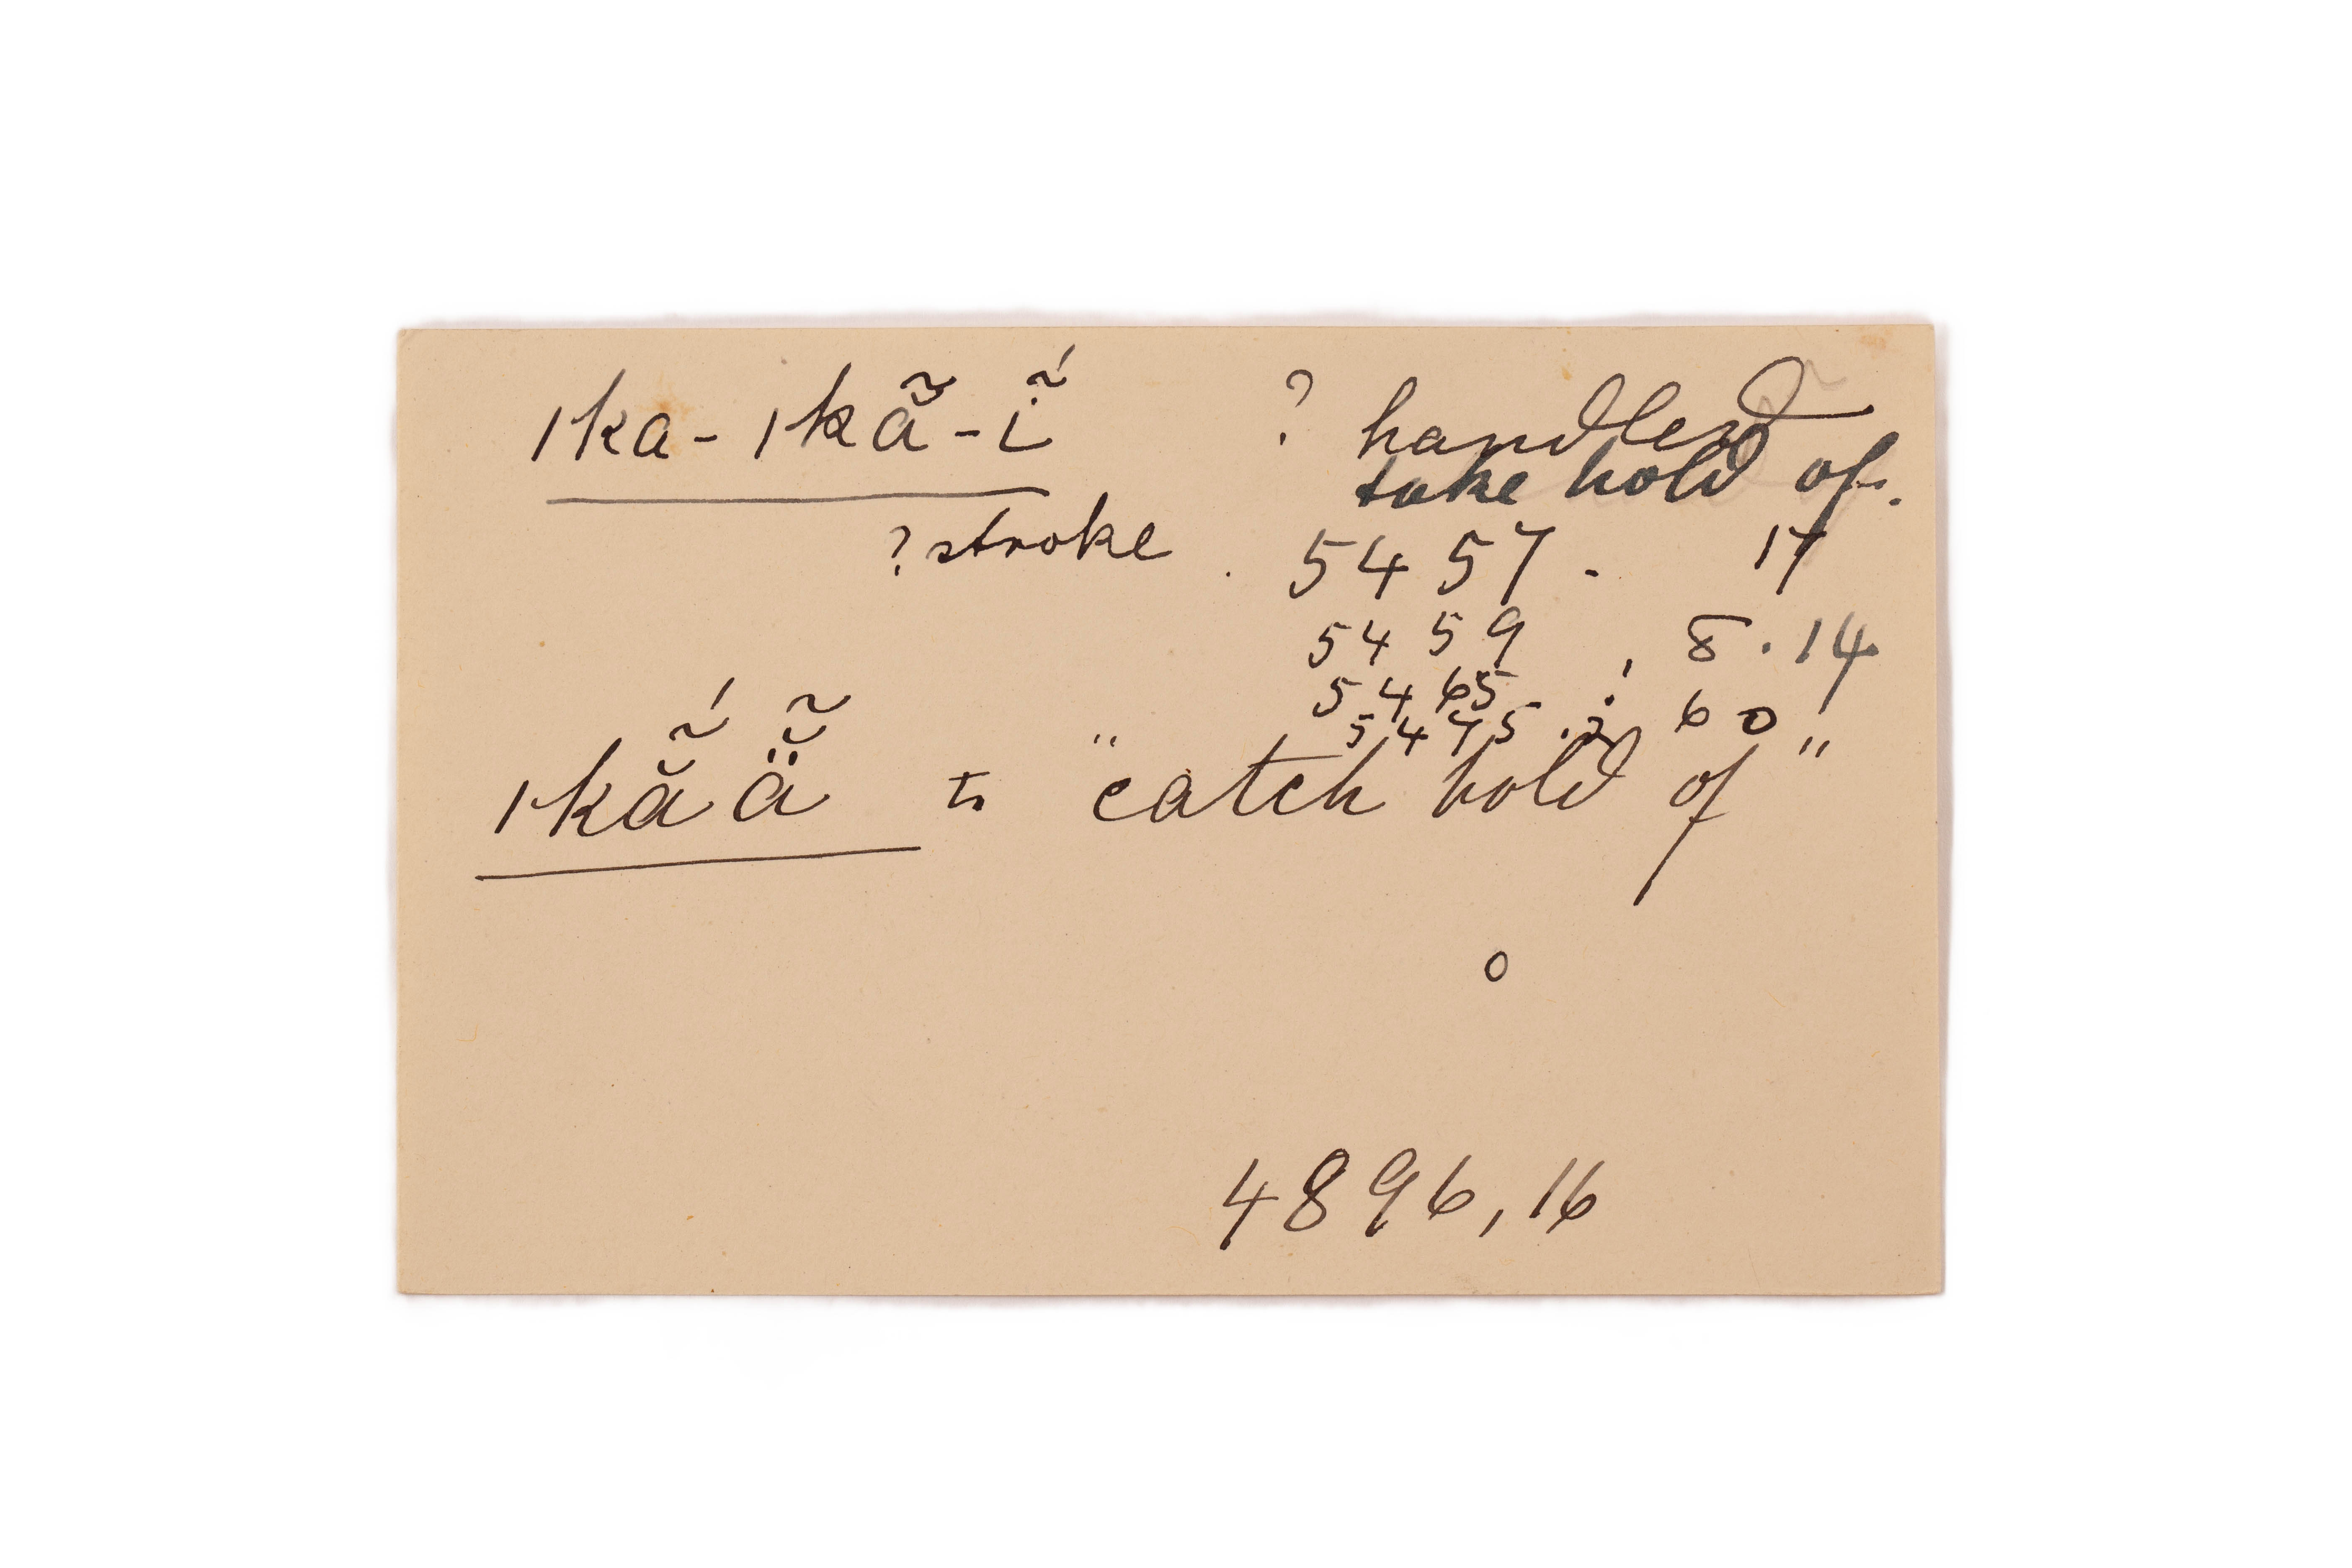 ǀka-ǀkã̆-ĩ́ ? handled
take hold of.
? stroke . 5457 - 17
5459 . 8.14
5465 . 60
5475.2
ǀkắ̃ ä̤̆̃ to "catch hold of"
4896,16